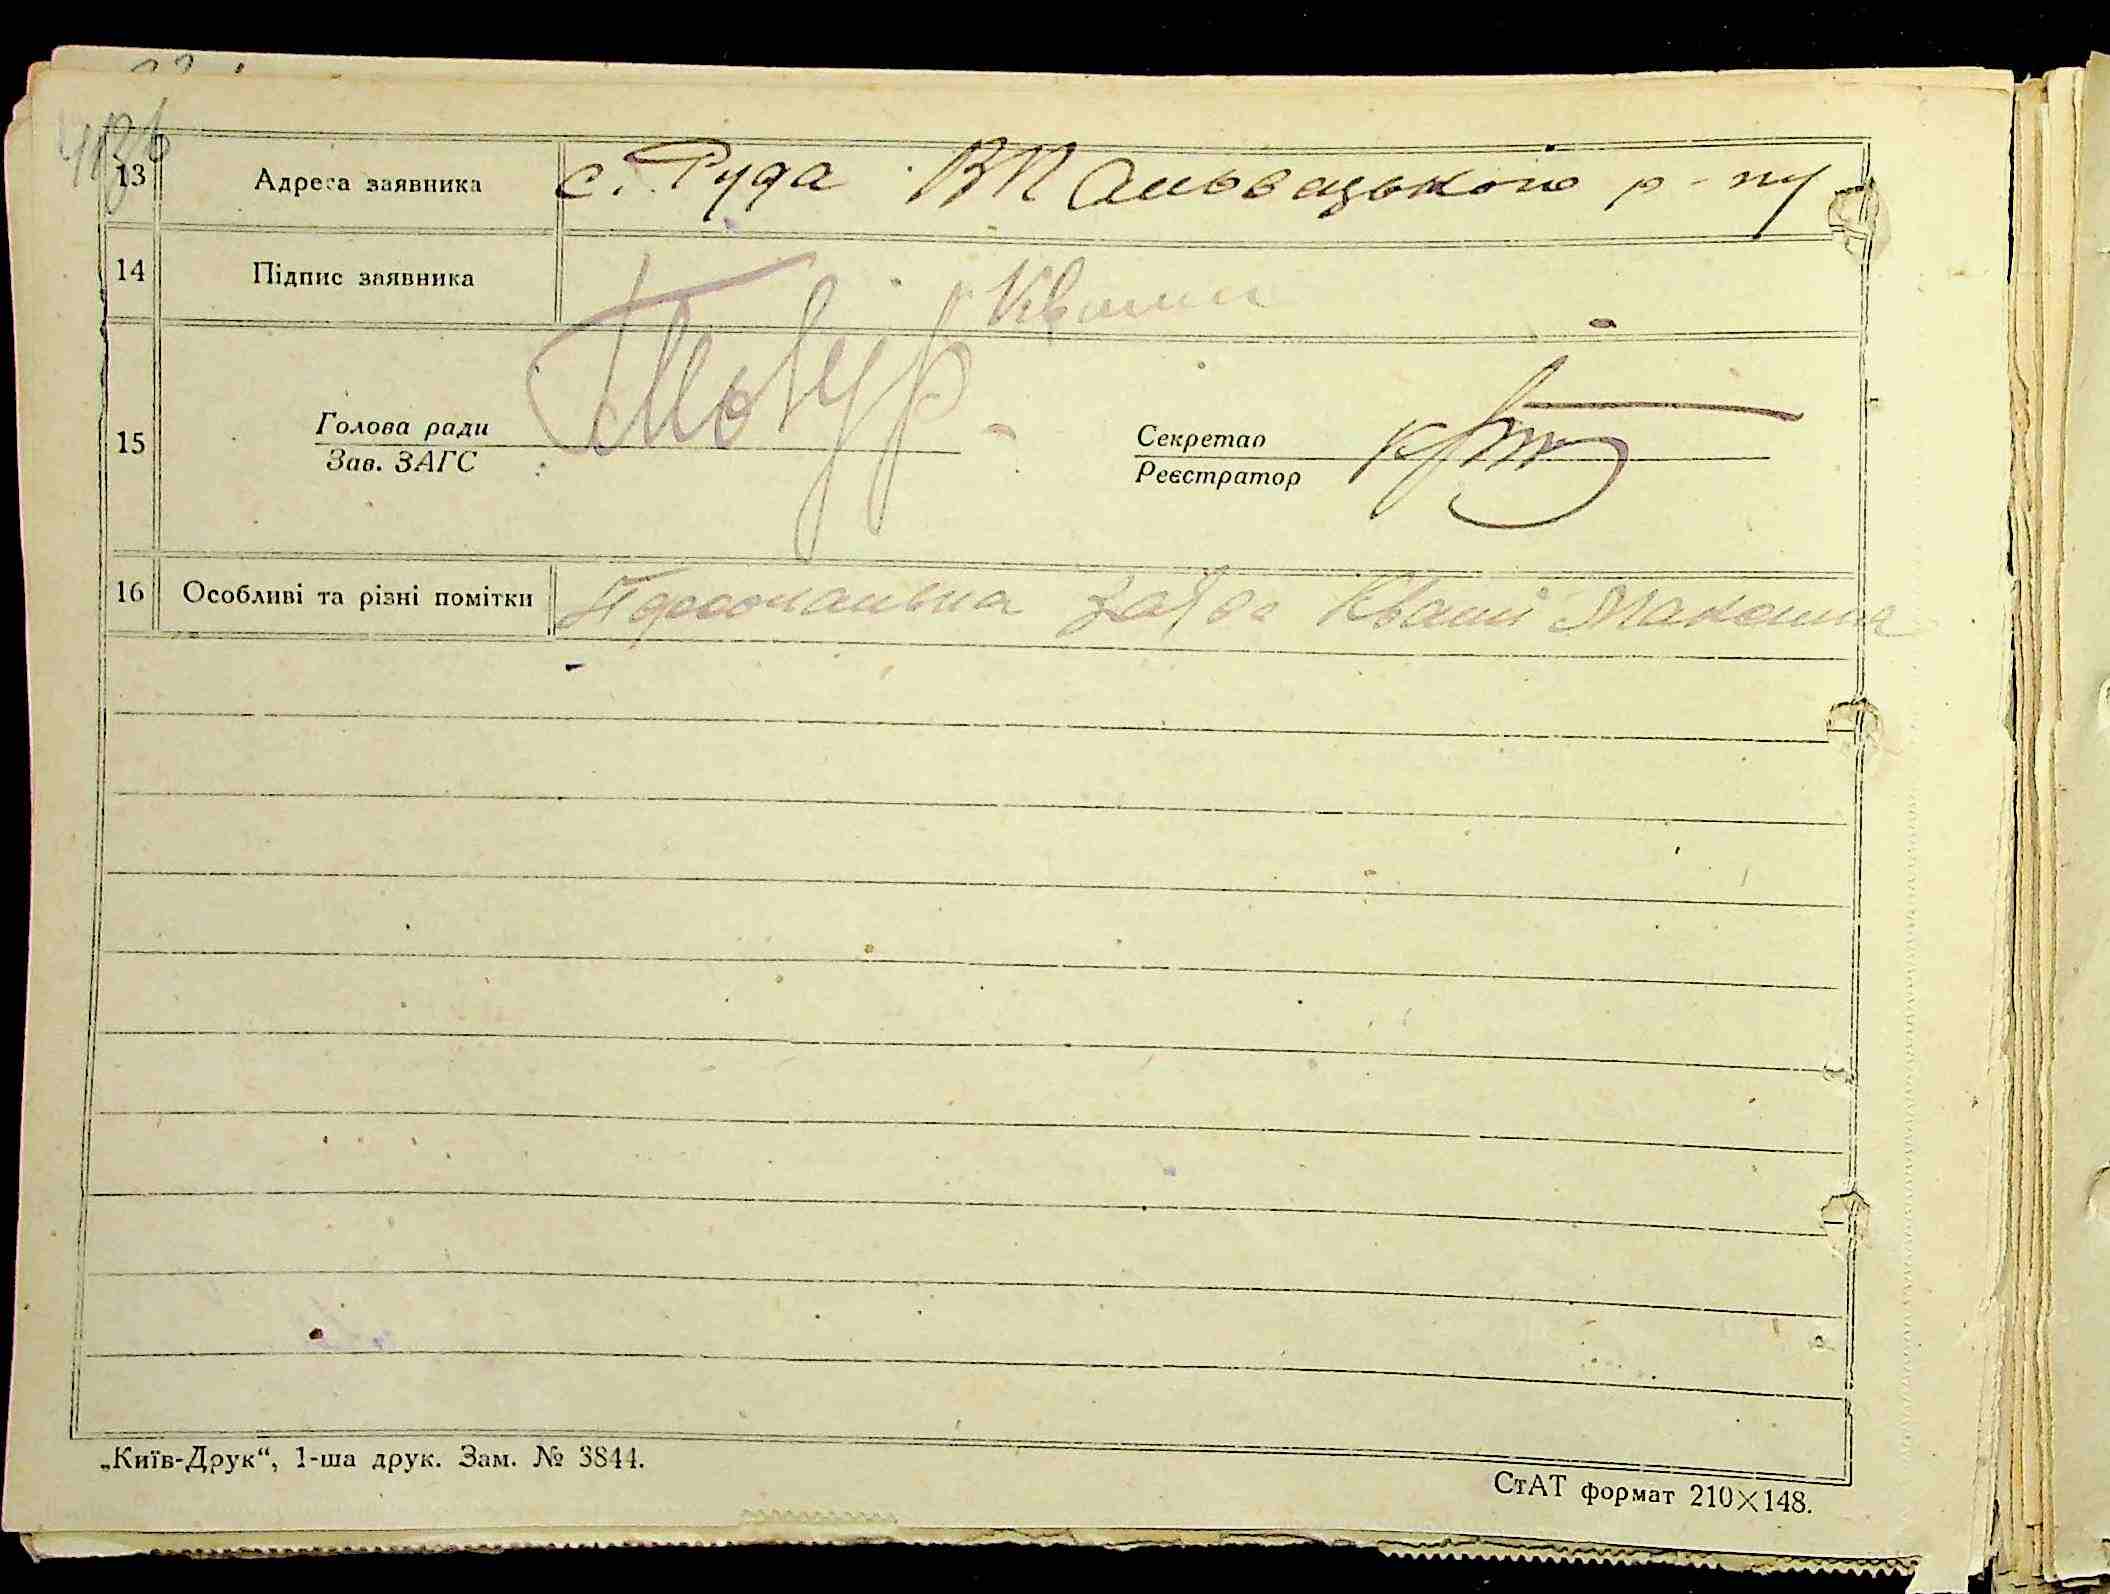 13 Адреса заявника с. Руда ВПСквирського р-ну
14 Підпис заявника Кваши
15 Голова ради
Зав. ЗАГС
Секретар
Реєстратор
16 Особливі та різні помітки Персональна заява Кваші
„Київ-Друк“, 1-ша друк. Зам. № 3844.
СтАТ формат 210×148.